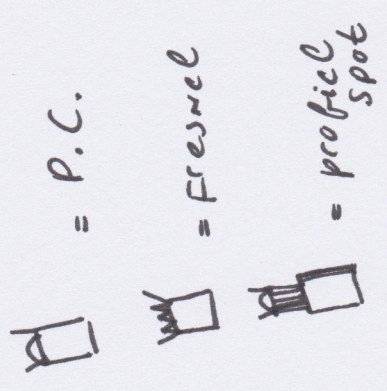 = P.C.
= Fresnel
= proficl
spot